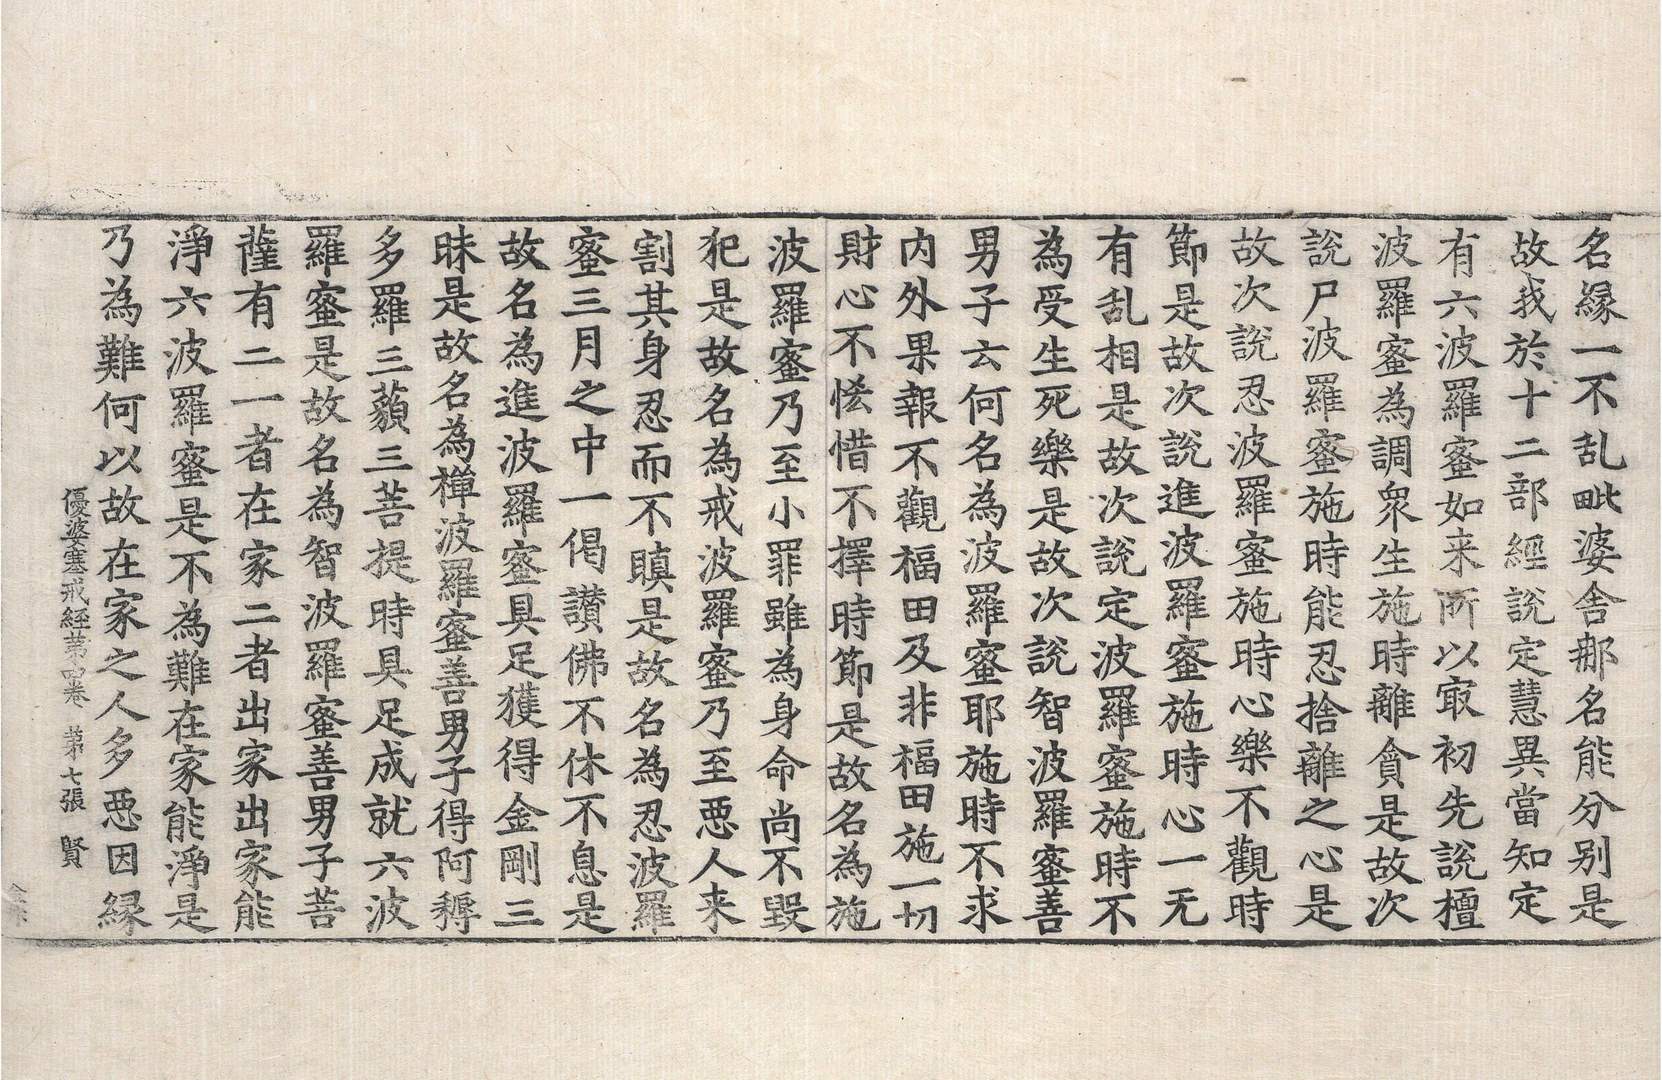 名緣一不乱毗婆舍那名能分别是
故我於十二部經說定慧異當知定
有六波羅蜜如来所以冣初先說檀
波羅蜜為調衆生施時離貪是故次
說尸波羅蜜施時能忍捨離之心是
故次說忍波羅蜜施時心樂不觀時
節是故次說進波羅蜜施時心一无
有乱相是故次說定波羅蜜施時不
為受生死樂是故次說智波羅蜜善
男子云何名為波羅蜜耶施時不求
内外果報不觀福田及非福田施一切
財心不恡惜不擇時節是故名為施
波羅蜜乃至小罪雖為身命尚不毀
犯是故名為戒波羅蜜乃至惡人来
割其身忍而不瞋是故名為忍波羅
蜜三月之中一偈讃佛不休不息是
故名為進波羅蜜具足獲得金剛三
昧是故名為禪波羅蜜善男子得阿耨
多羅三藐三菩提時具足成就六波
羅蜜是故名為智波羅蜜善男子菩
薩有二一者在家二者出家出家能
淨六波羅蜜是不為難在家能淨是
乃為難何以故在家之人多惡因緣
優婆塞戒經苐四卷 苐七張 賢